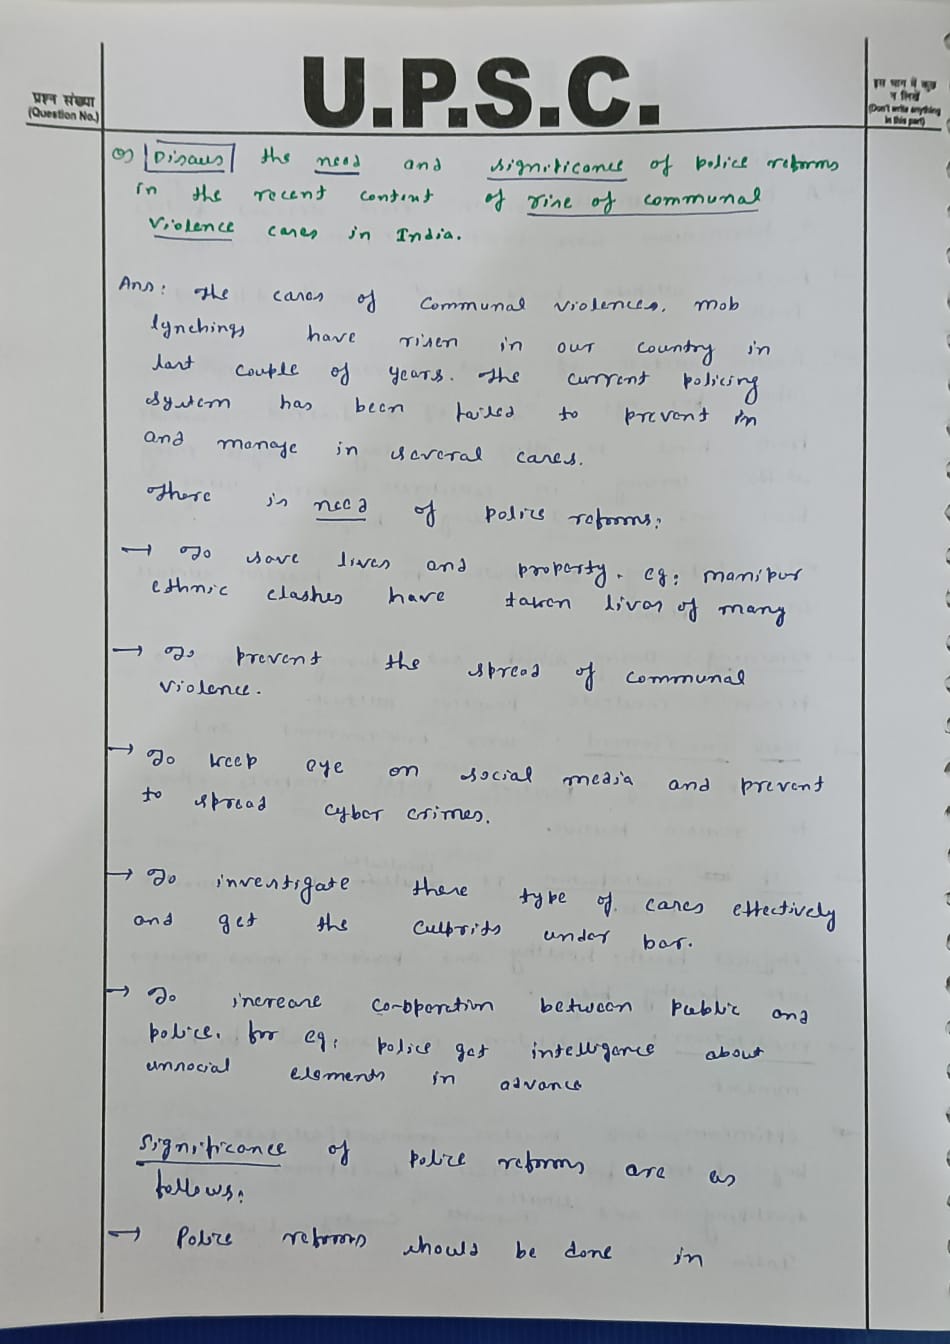 U.P.S.C.
प्रश्न संख्या
(Question No.)
इस भाग में कुछ
न लिखें
(Don't write anything
in this part)
Q) Discuss the need and significance of police reforms
in the recent context of rise of communal
violence cases in India.
Ans: The cases of communal violences, mob
lynchings have risen in our country in
last couple of years. The current policing
system has been failed to prevent in
and manage in several cases.
There is need of police reforms:
→ To save lives and property. eg: manipur
ethnic clashes have taken lives of many
→ To prevent the spread of communal
violence.
→ To keep eye on social media and prevent
to spread cyber crimes.
→ To investigate these type of cases effectively
and get the culprits under bar.
→ To increase co-operation between public and
police. for eg: police get intelligence about
unsocial elements in advance
Significance of police reforms are as
follows:
→ Police reforms should be done in